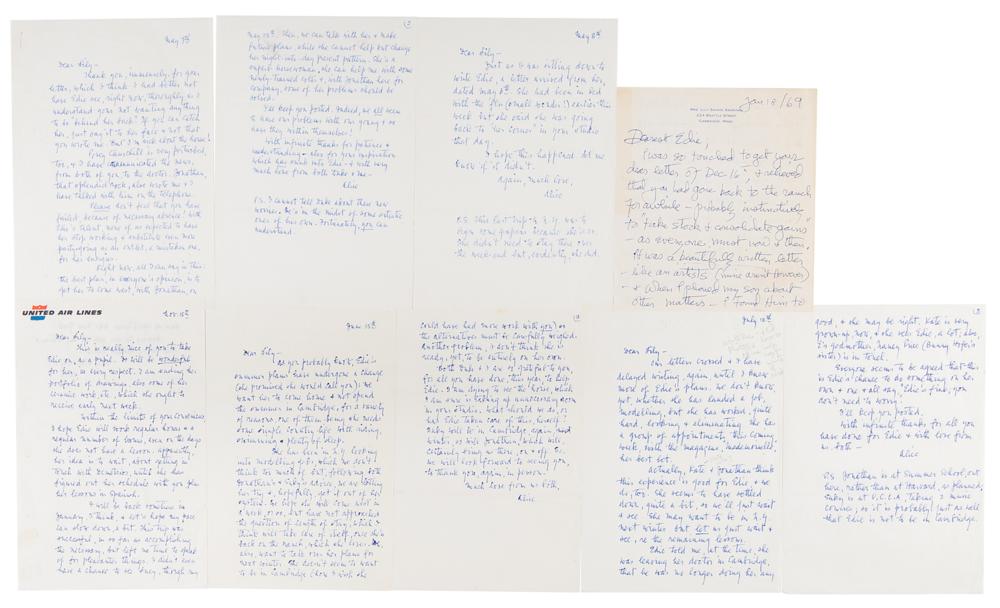 May 7th
Dear Lily –
Thank you, immensely, for your
letter, which I think I had better not
have Edie see, right now, thoroughly as I
understand your not wanting anything
to be "behind her back". If you can catch
her, just say it to her face & not that
you wrote me. But I'm sick about the horse!
Corey Churchill is very perturbed,
too, & I have communicated the news,
from both of you, to the doctor. Jonathan,
that splendid rock, also wrote me & I
have talked with him on the telephone.
Please don't feel that you have
failed, because of necessary absence! With
Edie's talent, none of us expected to have
her stop working & substitute even more
partying as an outlet, a mistaken one,
for her energies.
Right now, all I can say is this:
the best plan, in everyone's opinion, is to
get her to come west, with Jonathan, on
2
May 28th. Then, we can talk with her & make
future plans, while she cannot help but change
her night-into-day present pattern. She's a
superb horsewoman, she can help me with some
newly-trained colts &, with Jonathan here for
company, some of her problems should be
solved.
I'll keep you posted. Indeed, we all seem
to have our problems with our young & or
have they within themselves!
With infinite thanks for patience &
understanding – also for your inspiration
which has sunk into Edie – & with very
much love from both of us –
Alice
P.S. I cannot tell Duke about these new
worries. He's in the midst of some artistic
ones of his own. Fortunately, you can
understand.
May 8th
Dear Lily –
Just as I was sitting down to
write Edie, a letter arrived from her,
dated May 6th. She had been in bed
with the flu (small wonder!) earlier this
week but she said she was going
back to "her corner" in your studio
that day.
I hope this happened. Let me
know if it didn't.
Again, much love,
Alice
P.S. This last trip to N.Y. was to
sign some papers because she's 21.
She didn't need to stay there over
the week-end but, evidently, she did.
Mrs. Lily Swann Saarinen
224 Brattle Street
Cambridge, Mass.
Jan 18/69
Dearest Edie,
I was so touched to get your
dear letter of Dec 16th, & relieved
that you had gone back to the ranch
for awhile – probably instinctively
to "take stock & consolidate gains"
– as everyone must now & then.
It was a beautifully written letter
– like an artist's (mine aren't however)
– & when I phoned my son about
other matters – I found him to
UNITED AIR LINES
Nov. 15th
Dear Lily –
This is really nice of you to take
Edie on, as a pupil. It will be wonderful
for her, in every respect. I am sending her
portfolio of drawings, also some of her
ceramic work, etc., which she ought to
receive early next week.
Within the limits of your convenience,
I hope Edie will work regular hours & a
regular number of hours, even on the days
she does not have a lesson. Apparently,
her idea is to wait, about getting in
touch with                , until she has
figured out her schedule with you plus
her lessons in Spanish.
I will be back sometime in
January, I think, & let's hope my pace
can slow down, a bit. This trip was
successful, in so far as accomplishing
the necessary, but left no time to speak
of for pleasanter things. I didn't even
have a chance to see        , though my
June 15th
Dear Lily –
As you probably know, Edie's
summer plans have undergone a change
(she promised she would call you): we
want her to come home & not spend
the summer in Cambridge, for a variety
of reasons, one of them being she needs
some simple country life with riding,
swimming & plenty of sleep.
She has been in N.Y. looking
into modelling jobs, which we don't
think too much of but, following both
Jonathan's & Suky's advice, we are letting
her try &, hopefully, get it out of her
system. We hope she will come west in
a week, or so, but have not approached
the question of length of stay, which I
think will take care of itself, once she's
back on the ranch, which she loves. We,
also, want to talk over her plans for
next winter. She doesn't seem to want
to be in Cambridge (how I wish she
2
could have had more work with you) so
the alternatives must be carefully weighed.
Another problem, I don't think she is
ready, yet, to be entirely on her own.
Both Duke & I are so grateful to you,
for all you have done, this year, to help
Edie. I am dying to see the horse, which
I am sure is taking up unnecessary room
in your studio. What should we do, or
has Edie taken care of this, herself?
Suky will be in Cambridge, again next
winter, as will Jonathan, while we'll,
certainly, be in there, on & off. So
we will look forward to seeing you,
to thank you again, in person.
Much love from us both,
Alice
July 12th
Dear Lily –
Our letters crossed & I have
delayed writing, again, until I knew
more of Edie's plans. We don't know
yet, whether she has landed a job,
modelling, but she has worked, quite
hard, looking & eliminating. She has
a group of appointments, this coming
week, with the magazine, Mademoiselle,
her best bet.
Actually, Kate & Jonathan think
this experience is good for Edie, & we
do, too. She seems to have settled
down, quite a bit, so we'll just wait
& see. She may want to be in N.Y.
next winter but let us just wait &
see, re the remaining lessons.
Edie told me, at the time, she
was leaving her doctor in Cambridge,
that he was no longer doing her any
2
good, & she may be right. Kate is very
grown-up, now, & she sees Edie, a lot; also,
E's godmother,
sister) is in touch.
Everyone seems to be agreed that this
is Edie's chance to do something on her
own & one & all say, "Edie's fine, you
don't need to worry."
I'll keep you posted.
With infinite thanks for all you
have done for Edie & with love from
us both –
Alice
P.S. Jonathan is at summer school, out
here, rather than at Harvard, as planned;
Suky is at U.C.L.A., taking 2 more
courses, so it is probably just as well
that Edie is not to be in Cambridge.